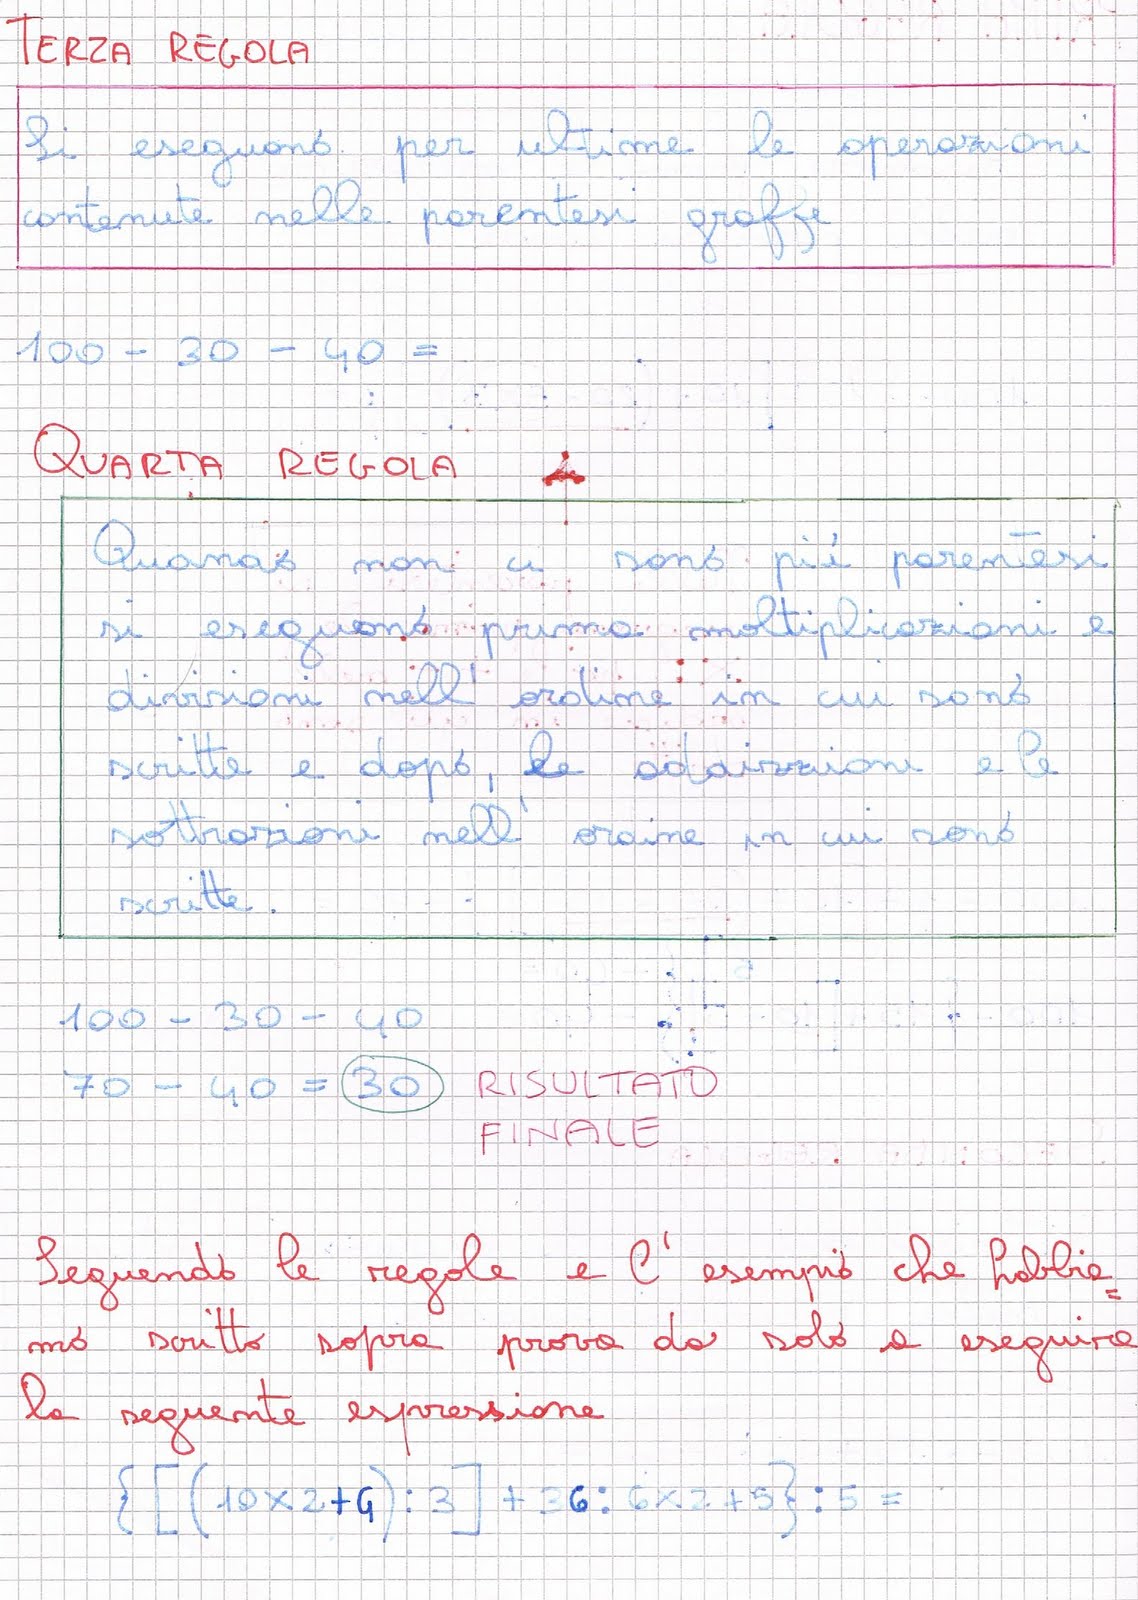 TERZA REGOLA
Si eseguono per ultime le operazioni
contenute nelle parentesi graffe
100 - 30 - 40 =
QUARTA REGOLA
Quando non ci sono più parentesi
si eseguono prima moltiplicazioni e
divisioni nell'ordine in cui sono
scritte e dopo, le addizioni e le
sottrazioni nell'ordine in cui sono
scritte.
100 - 30 - 40
70 - 40 = 30 RISULTATO
FINALE
Seguendo le regole e l'esempio che habbia=
mo scritto sopra prova da solo a eseguire
la seguente espressione
{[(10x2+G):3]+36:6x2+5}:5=